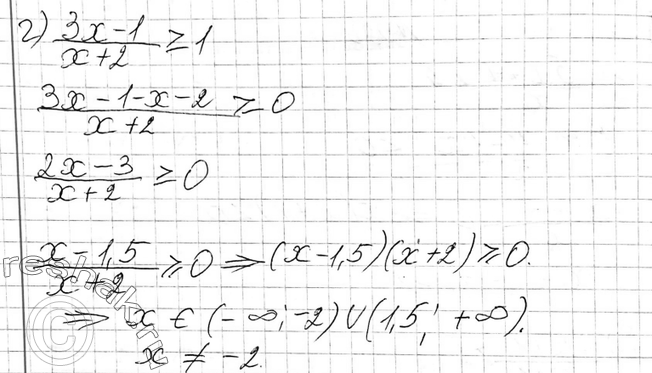 2) (3x-1)/(x+2) ≥ 1
(3x-1-x-2)/(x+2) ≥ 0
(2x-3)/(x+2) ≥ 0
(x-1,5)/(x+2) ≥ 0 ⇒ (x-1,5)(x+2) ≥ 0.
⇒ x ∈ (-∞; -2) ∪ (1,5; +∞).
x ≠ -2
© reshak.ru